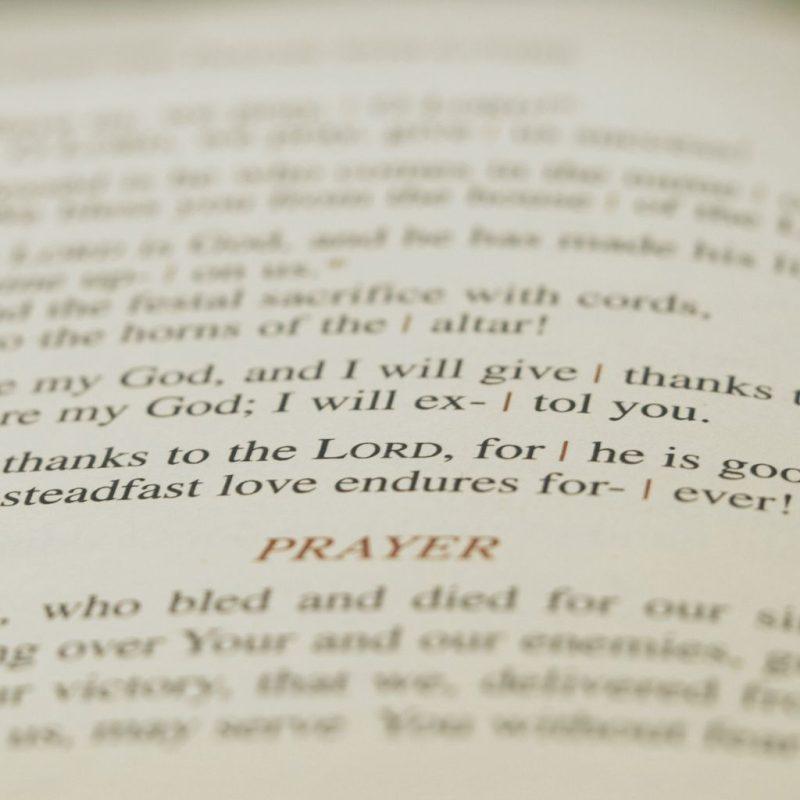 we pray, give | us success!
is he who comes in the name |
bless you from the house | of the L
LORD is God, and he has made his
up- | on us.*
the festal sacrifice with cords,
o the horns of the | altar!
e my God, and I will give | thanks t
re my God; I will ex- | tol you.
thanks to the LORD, for | he is goo
steadfast love endures for- | ever!
PRAYER
, who bled and died for our si
ng over Your and our enemies, g
ur victory, that we, delivered fr
us, may serve You without fear